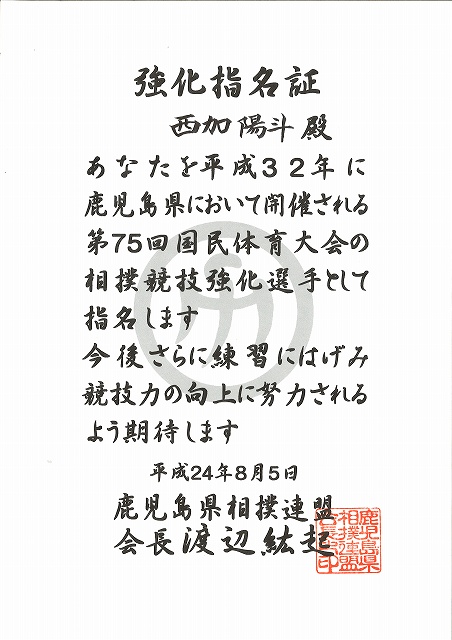 強化指名証
西加陽斗殿
あなたを平成32年に
鹿児島県において開催される
第75回国民体育大会の
相撲競技強化選手として
指名します
今後さらに練習にはげみ
競技力の向上に努力される
よう期待します
平成24年8月5日
鹿児島県相撲連盟
会長渡辺紘起
鹿児島県
相撲連盟
会長之印